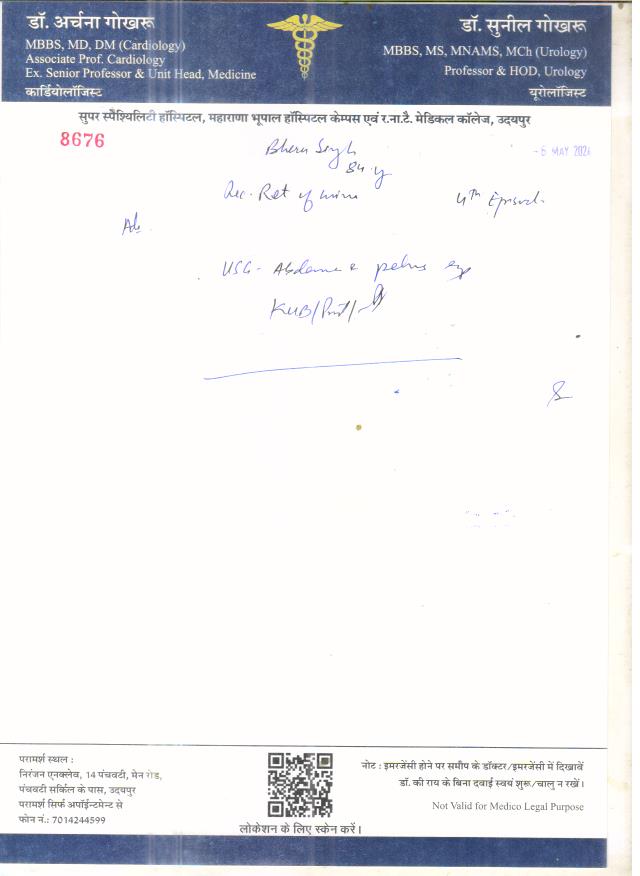 डॉ. अर्चना गोखरू
MBBS, MD, DM (Cardiology)
Associate Prof. Cardiology
Ex. Senior Professor & Unit Head, Medicine
कार्डियोलॉजिस्ट
डॉ. सुनील गोखरू
MBBS, MS, MNAMS, MCh (Urology)
Professor & HOD, Urology
यूरोलॉजिस्ट
सुपर स्पैश्यिलिटी हॉस्पिटल, महाराणा भूपाल हॉस्पिटल केम्पस एवं र.ना.टै. मेडिकल कॉलेज, उदयपुर
8676
-6 MAY 202
Bheru Singh
84 y
Ret of urine
4th Episod.
Ad
USG - Abdomen & pelvis
KUB/Prost/
परामर्श स्थल :
निरंजन एनक्लेव, 14 पंचवटी, मेन रोड,
पंचवटी सर्किल के पास, उदयपुर
परामर्श सिर्फ अपॉईन्टमेन्ट से
फोन नं.: 7014244599
लोकेशन के लिए स्केन करें।
नोट : इमरजेंसी होने पर समीप के डॉक्टर/इमरजेंसी में दिखावें
डॉ. की राय के बिना दवाई स्वयं शुरू/चालु न रखें।
Not Valid for Medico Legal Purpose